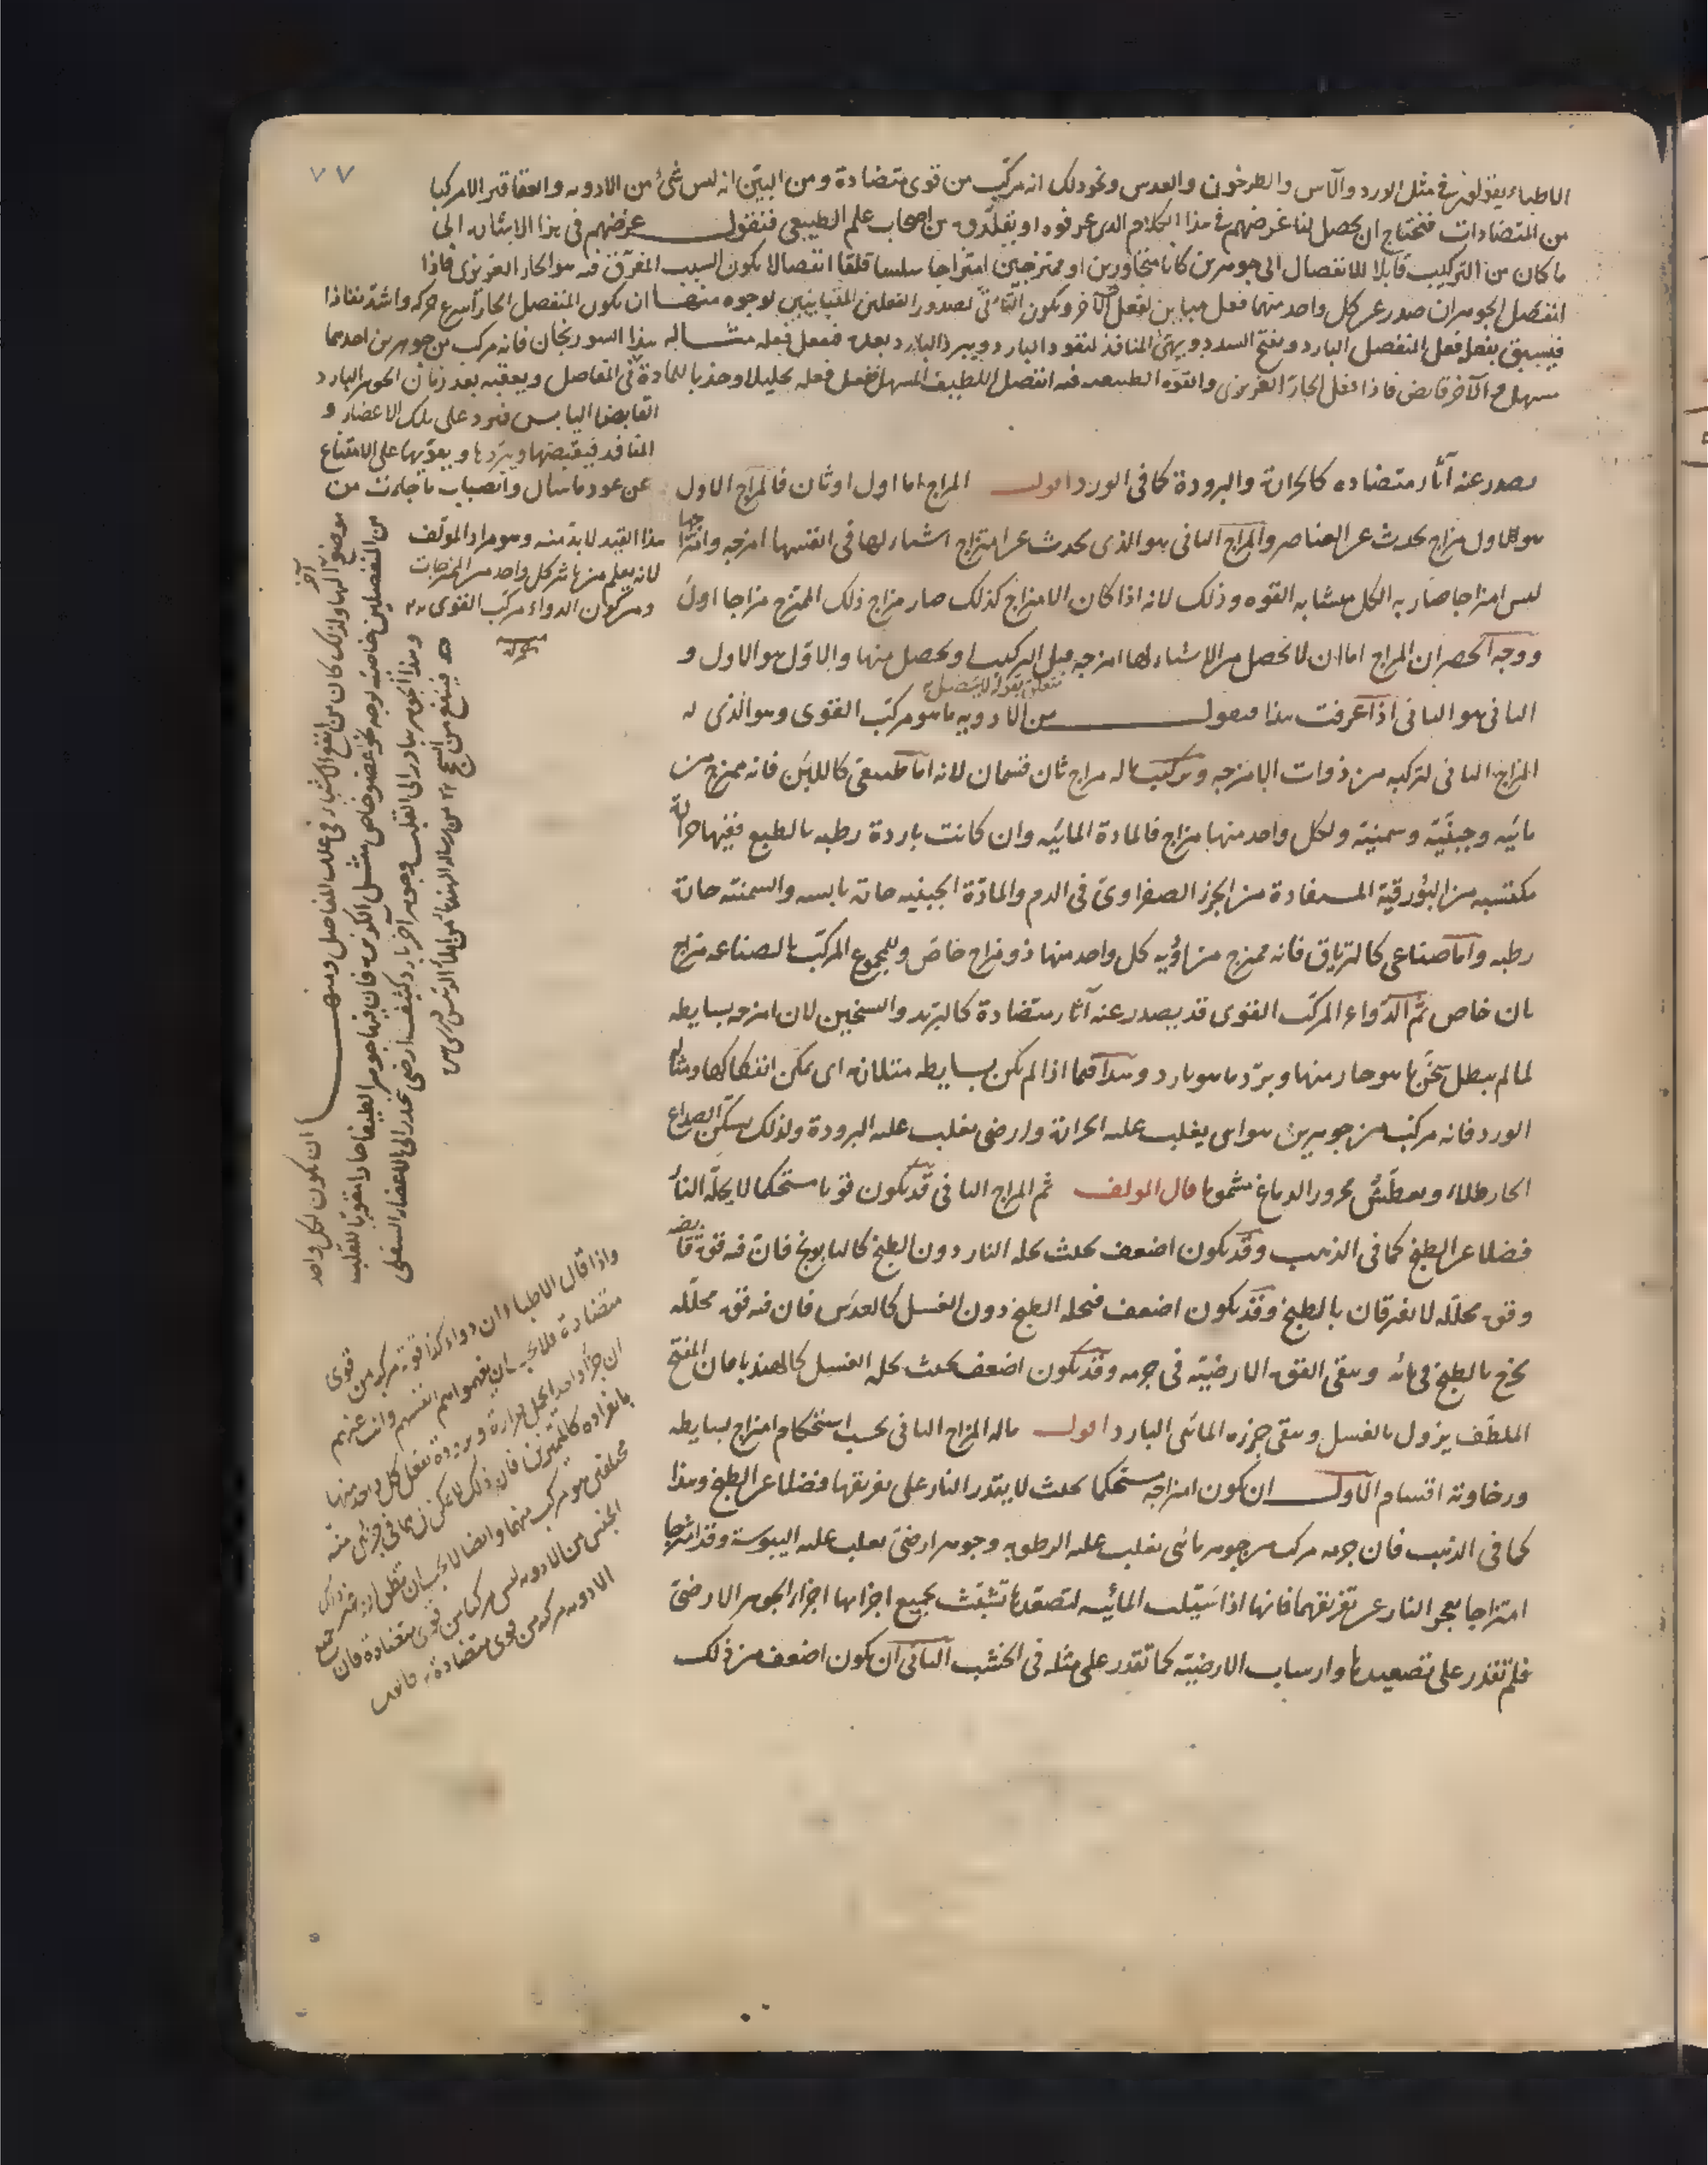 ٧٧
الاطباء يقولون في مثل الورد والآس والطرخون والعدس ونحو ذلك انه مركب من قوى متضادة ومن البين انه ليس شئ من الادويه والعقاقير الا مركبا
من المتضادات فنحتاج ان يحصل لنا غرضهم في هذا الكلام الذى عرفوه او تقلدوه من اصحاب علم الطبيعى فنقول غرضهم في هذا الامتثال الى
ما كان من التركيب قابلا للانفصال الى جوهرين كانا متجاورين او ممتزجين امتزاجا سلسا قلقا انفصالا يكون السبب المفرق فيه هو الحار الغريزى فاذا
انفصل الجوهران صدر عن كل واحد منهما فعل مباين لفعل الآخر ويكون لصدور الفعلين المتباينين لوجوه منها ان يكون المنفصل الحار اسرع حركه واشد نفاذا
فيسبق بفعل فعل المنفصل البارد ويفتح السدد ويهيئ المنافذ لنفوذ البارد ويبرد البارد بعد فعل فعله مثاله هذا السورنجان فانه مركب من جوهرين احدهما
مسهل والآخر قابض فاذا فعل الحار الغريزى والقوه الطبيعيه فيه انفصل اللطيف المسهل ففعل فعله تحليلا وجذبا للمادة فى المفاصل ويعقبه بعد زمان الجوهر البارد
القابض اليابس فيرد على تلك الاعضاء و
المنافذ فيقبضها ويبردها ويقويها على الامتناع
عن عود ما سال وانصباب ما جاءت من
يصدر عنه آثار متضاده كالحرارة والبرودة كما فى الورد اقول المزاج اما اول او ثان فالمزاج الاول
هو الاول مزاج يحدث عن العناصر والمزاج الثانى هو الذى يحدث عن امتزاج اشياء لها فى انفسها امزجه وامتزاجها
هذا القيد لا بد منه وهو مراد المؤلف
لانه يعلم منه اثر كل واحد من الممتزجات
ومن كون الدواء مركب القوى
ليس امتزاجا صار به الكل متشابه القوه وذلك لانه اذا كان الامتزاج كذلك صار مزاج ذلك الممتزج مزاجا اول
ووجه الحصر ان المزاج اما ان لا يحصل من اشياء لها امزجه قبل التركيب او يحصل منها والاول هو الاول و
متعلق بقوله
الثانى هو الثانى اذا عرفت هذا فنقول من الادويه ما هو مركب القوى وهو الذى له
المزاج الثانى لتركبه من ذوات الامزجه وتركيب ما له مزاج ثان قسمان لانه اما طبيعى كاللبن فانه ممتزج من
مائيه وجبنيه وسمنيه ولكل واحد منها مزاج فالمادة المائيه وان كانت باردة رطبه بالطبع ففيها حرارة
مكتسبه من البورقية المستفادة من الجزء الصفراوى فى الدم والمادة الجبنيه حارة يابسه والسمنيه حارة
رطبه واما صناعى كالترياق فانه ممتزج من ادويه كل واحد منها ذو مزاج خاص وللمجموع المركب بالصناعه مزاج
ثان خاص ثم الدواء المركب القوى قد يصدر عنه آثار متضادة كالتبريد والتسخين لان امزجه بسايطه
لما لم يبطل سخن ما هو حار منها وبرد ما هو بارد وهذا فيما اذا لم يكن بسايطه متلازمة اى يمكن انفكاكها ومثاله
الورد فانه مركب من جوهرين هوائى يغلب عليه الحرارة وارضى يغلب عليه البرودة ولذلك يسكن الصداع
الحار طلاء ويعطس محرور الدماغ شموما قال المؤلف ثم المزاج الثانى قد يكون قويا مستحكما لا يحله النار
فضلا عن الطبخ كما فى الذهب وقد يكون اضعف بحيث يحله النار دون الطبخ كالبابونج فان فيه قوة قابضه
وقوة محلله لا تفرقان بالطبخ وقد يكون اضعف فيحله الطبخ دون الغسل كالعدس فان فيه قوة محلله
تخرج بالطبخ فى مائه ويبقى القوة الارضيه فى جرمه وقد يكون اضعف بحيث يحله الغسل كالهندبا فان المفتح
الملطف يزول بالغسل ويبقى جزءه المائى البارد اقول ما له المزاج الثانى بحسب استحكام امتزاج بسايطه
ورخاوته اقسام الاول ان يكون امتزاجه مستحكما بحيث لا يقدر النار على تفريقها فضلا عن الطبخ وهذا
كما فى الذهب فان جرمه مركب من جوهر مائى يغلب عليه الرطوبه وجوهر ارضى يغلب عليه اليبوسة وقد امتزجا
امتزاجا يعجز النار عن تفريقهما فانها اذا سيلت المائيه لتصعدها تشبثت بجميع اجزائها اجزاء الجوهر الارضى
فلم تقدر على تصعيدها وارساب الارضيه كما تقدر على مثله فى الخشب الثانى ان يكون اضعف من ذلك
موضع آخر اليها ولذلك كان من انفع الاشياء فى علل المفاصل ومنها ان يكون لكل واحد
من المنفصلين خاصيه توجه نحو عضو خاص مثل الكزبره فان فيها جوهرا لطيفا حارا مقويا للقلب
وهذا الجوهر يبادر الى القلب وجوهر آخر بارد كثيف ارضى ينحدر الى الاعضاء السفلى
واذا قال الاطباء ان دواء كذا قوته مركبه من قوى
متضادة فلا يجب ان يفهموا هم انفسهم وانت عنهم
ان جزءا واحدا يحمل حرارة وبرودة تفعل كل واحد منها
بانفراده كالمتميزين فان ذلك لا يمكن بل هما فى جزئين منه
مختلفين هو مركب منهما وايضا لا يجب ان تظن ان غير ذلك
الجنس من الادويه ليس مركبا من قوى متضادة فان جميع
الادويه مركبه من قوى متضادة قانون